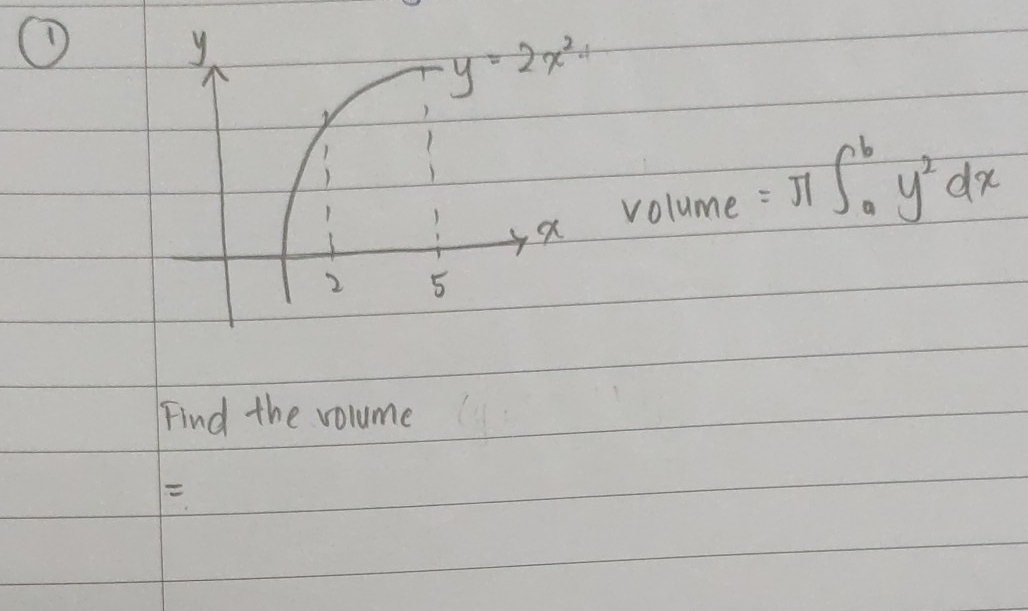 ①
y
y = 2x²
volume = π ∫ₐᵇ y² dx
x
2
5
Find the volume
=